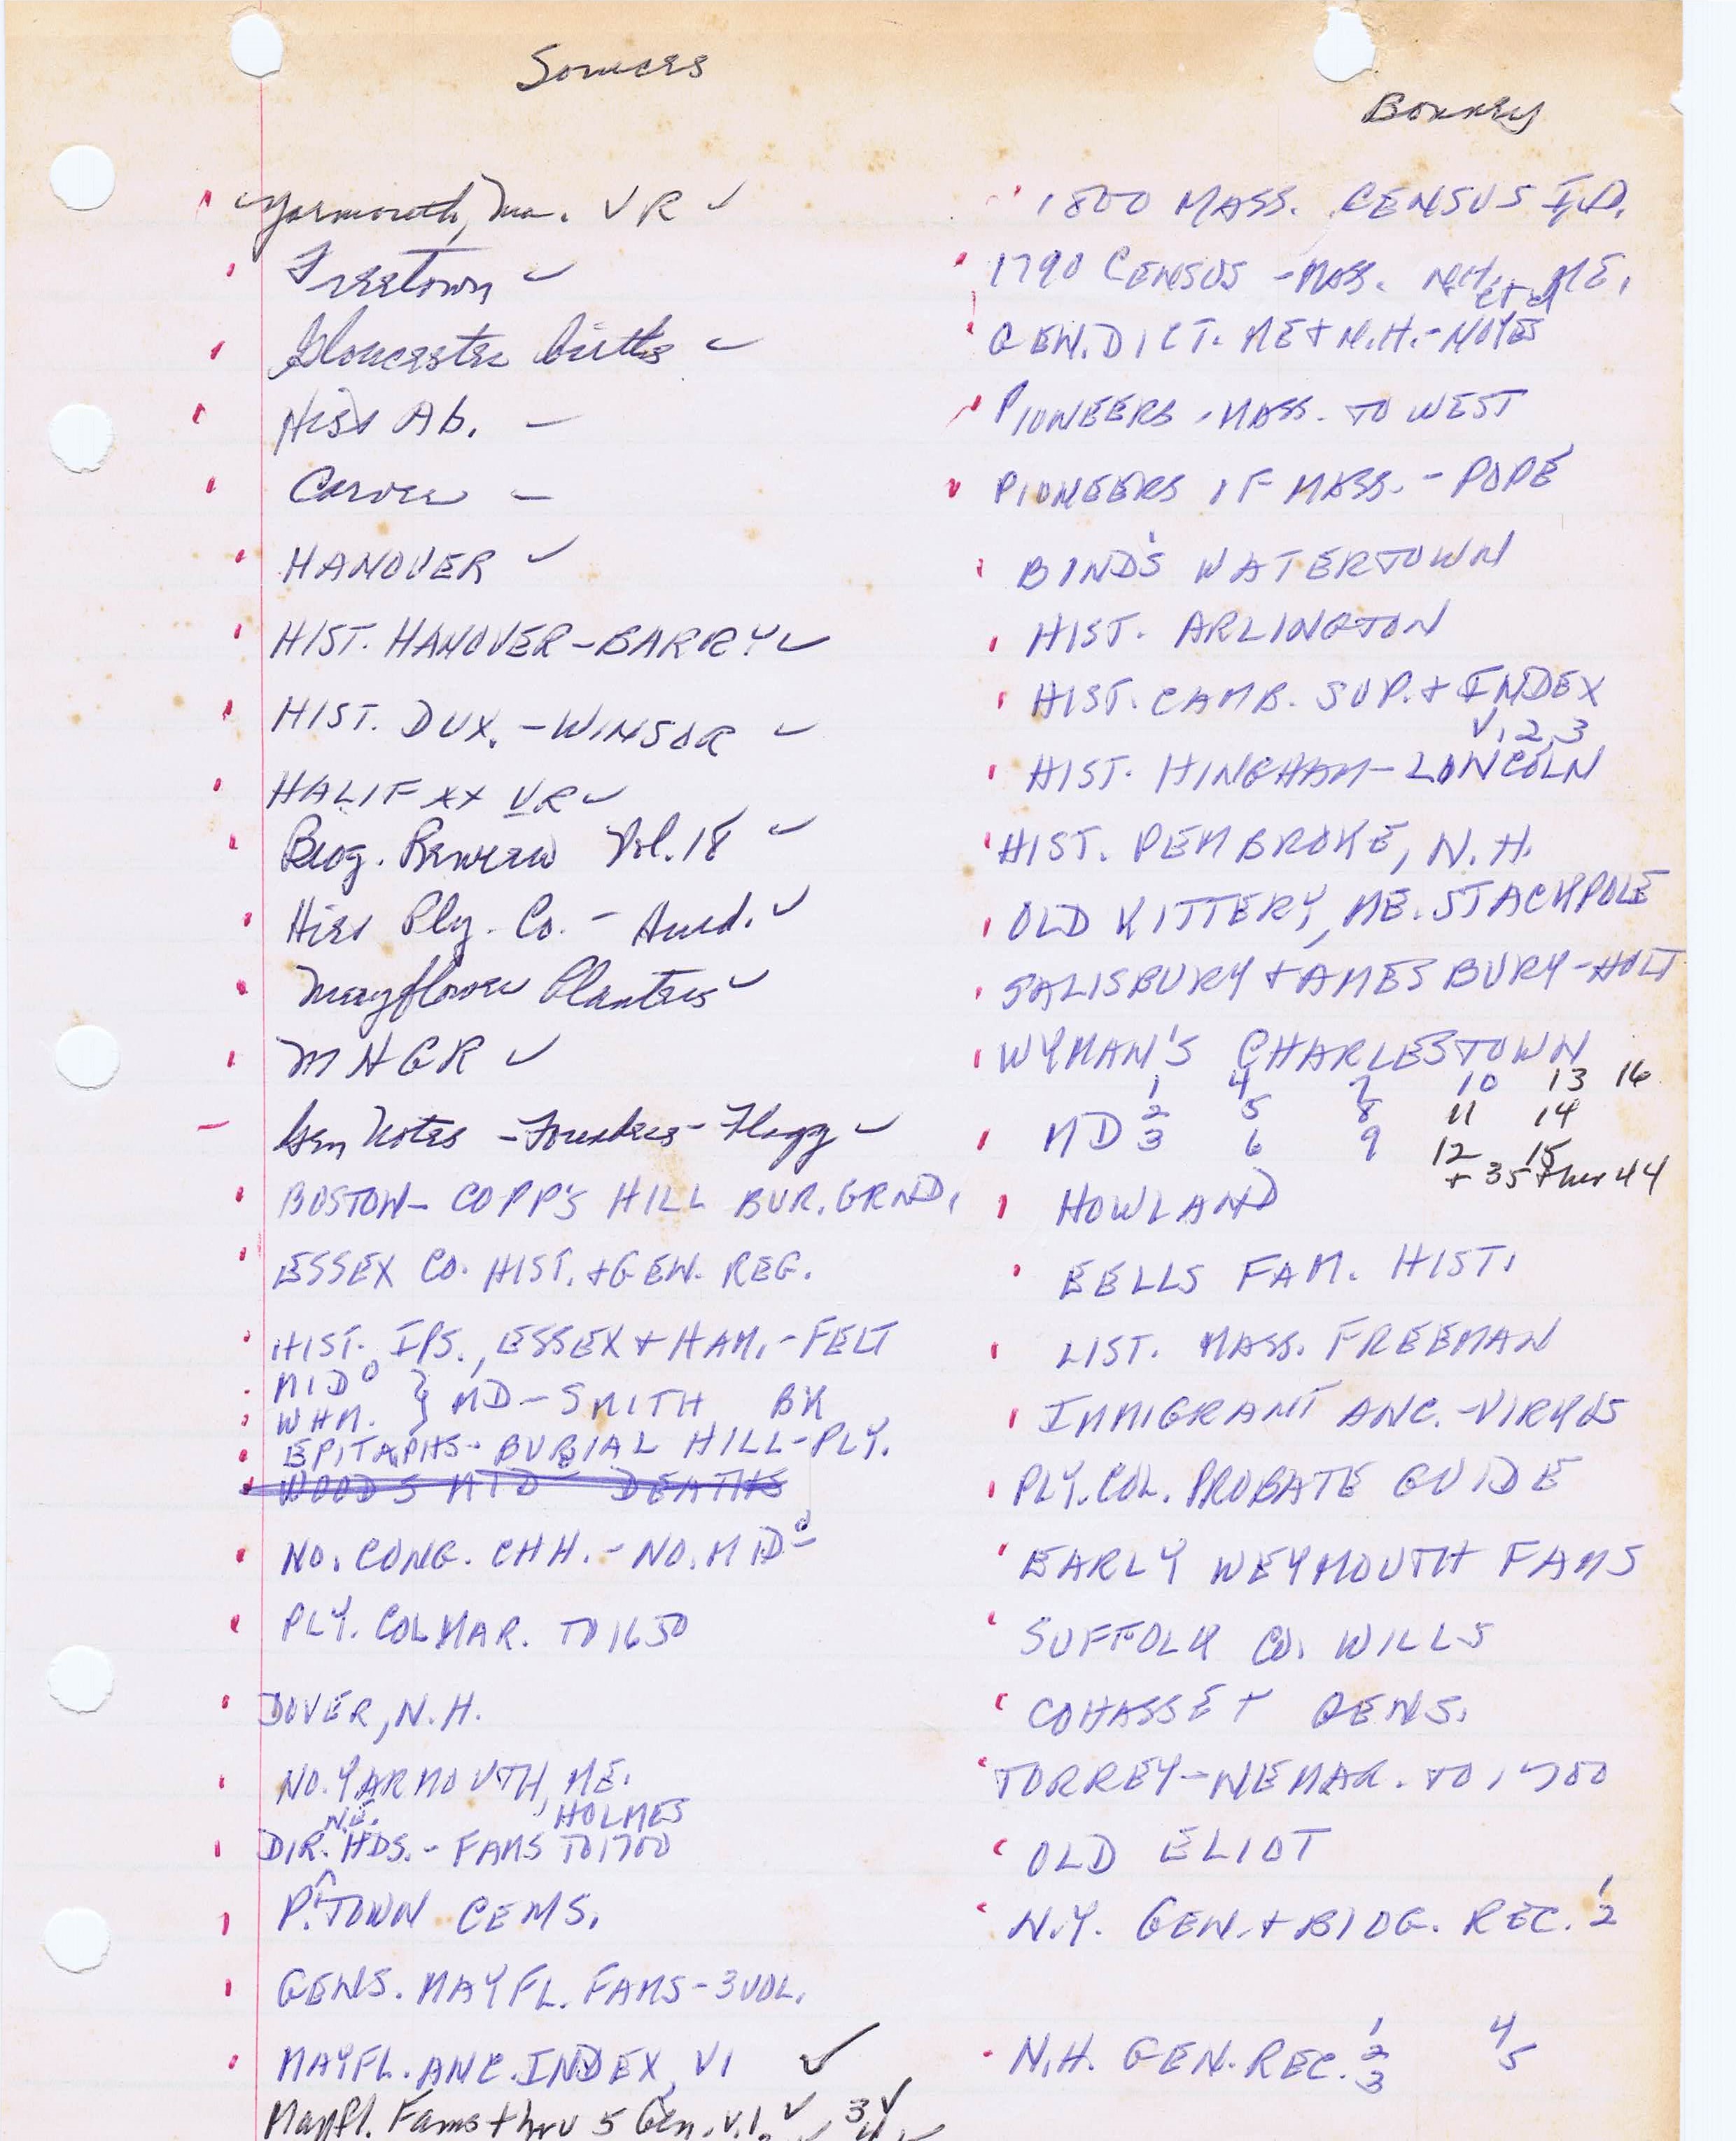 Sources
Bonney
Yarmouth, Ma. VR ✓
Freetown ✓
Gloucester births ✓
Hist Ab. –
Carver –
HANOVER ✓
HIST. HANOVER-BARRY ✓
HIST. DUX. -WINSOR ✓
HALIFAX VR ✓
Biog. Review Vol. 18 ✓
Hist Ply. Co. - Hurd. ✓
Mayflower Planters ✓
MHGR ✓
Gen Notes -Founders- Flagg ✓
BOSTON- COPP'S HILL BUR. GRND.
ESSEX CO. HIST. +GEN. REG.
HIST. IPS., ESSEX + HAM. -FELT
MIDD } MD-SMITH BK
WHM.
EPITAPHS- BURIAL HILL-PLY.
WOOD'S MID DEATHS
NO. CONG. CHH. - NO. MIDD
PLY. COL MAR. TO 1650
DOVER, N.H.
NO. YARMOUTH, ME.
N.E. HOLMES
DIR. HDS. - FAMS TO 1700
P. TOWN CEMS.
GENS. MAYFL. FAMS-3VOL.
MAYFL. ANC. INDEX, V1 ✓
Mayfl. Fams thru 5 Gen. v.1. ✓, 3 ✓
1800 MASS. CENSUS IND.
1790 CENSUS -MASS. N.H. ME.
etc
GEN. DICT. ME + N.H.-NOYES
PIONEERS - MASS. TO WEST
PIONEERS OF MASS. - POPE
BOND'S WATERTOWN
HIST. ARLINGTON
HIST. CAMB. SUP. + INDEX
V. 2, 3
HIST. HINGHAM- LINCOLN
HIST. PEMBROKE, N.H.
OLD KITTERY, ME. STACKPOLE
SALISBURY + AMESBURY-HOYT
WYMAN'S CHARLESTOWN
1 4 7 10 13 16
2 5 8 11 14
MD 3 6 9 12 15
+ 35 thru 44
HOWLAND
EELLS FAM. HIST.
LIST. MASS. FREEMAN
IMMIGRANT ANC. -VIRKUS
PLY. COL. PROBATE GUIDE
EARLY WEYMOUTH FAMS
SUFFOLK CO. WILLS
COHASSET GENS.
TORREY-NE MAR. TO 1700
OLD ELIOT
N.Y. GEN. + BIOG. REC. 1 2
N.H. GEN. REC. 1 2 3 4 5